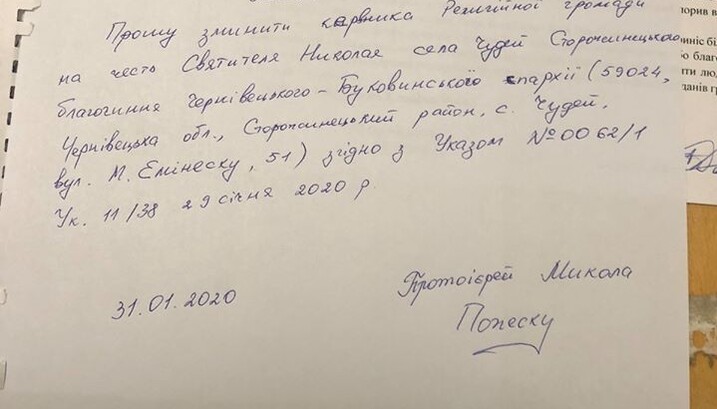 Прошу змінити керівника Релігійної громади
на честь Святителя Николая села Чудей Сторожинецького
благочиння Чернівецько-Буковинської єпархії (59024,
Чернівецька обл., Сторожинецький район, с. Чудей,
вул. М. Емінеску, 51) згідно з Указом №0062/1
Ук. 11/38 29 січня 2020 р.
31.01.2020
Протоієрей Микола
Попеску